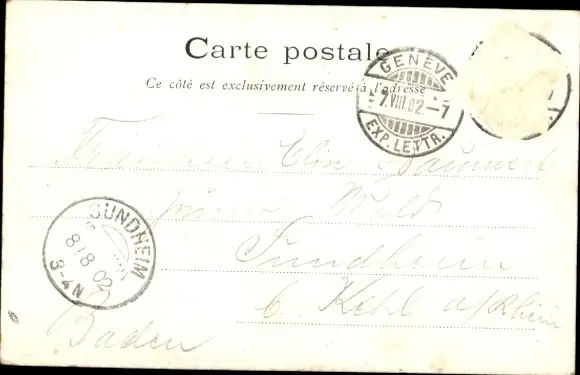 Carte postale
Ce côté est exclusivement réservé à l'adresse
GENÈVE
7.VIII.02.–7
EXP. LETTR.
Wald
SUNDHEIM
8/8 02
3-4N
Sundheim
b. Kehl a/Rhein
Baden